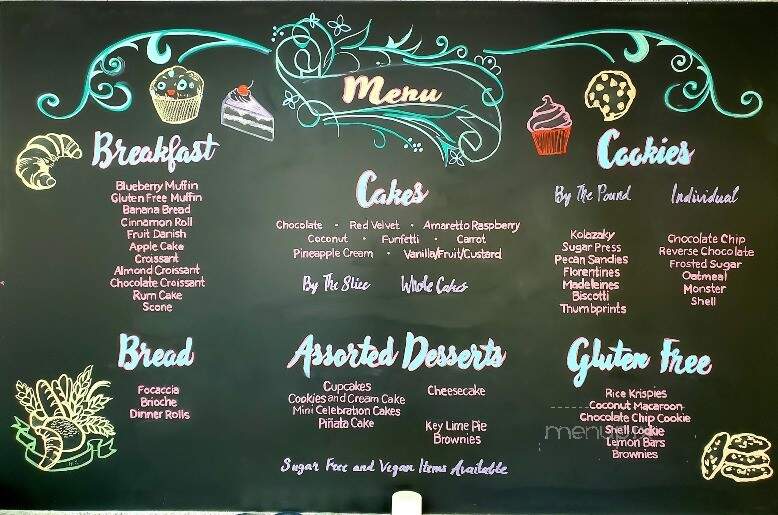 Menu
Breakfast
Blueberry Muffin
Gluten Free Muffin
Banana Bread
Cinnamon Roll
Fruit Danish
Apple Cake
Croissant
Almond Croissant
Chocolate Croissant
Rum Cake
Scone
Bread
Focaccia
Brioche
Dinner Rolls
Cakes
Chocolate · Red Velvet · Amaretto Raspberry
Coconut · Funfetti · Carrot
Pineapple Cream · Vanilla/Fruit/Custard
By The Slice Whole Cakes
Assorted Desserts
Cupcakes
Cookies and Cream Cake
Mini Celebration Cakes
Piñata Cake
Cheesecake
Key Lime Pie
Brownies
Sugar Free and Vegan Items Available
Cookies
By The Pound
Kolazaky
Sugar Press
Pecan Sandies
Florentines
Madeleines
Biscotti
Thumbprints
Individual
Chocolate Chip
Reverse Chocolate
Frosted Sugar
Oatmeal
Monster
Shell
Gluten Free
Rice Krispies
Coconut Macaroon
Chocolate Chip Cookie
Shell Cookie
Lemon Bars
Brownies